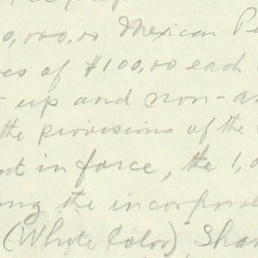 0,000.00 Mexican Pe
es of $100.00 each
-up and non-as
the provisions of the
nt in force, the 1,0
ong the incorpora
(White Color), Shar